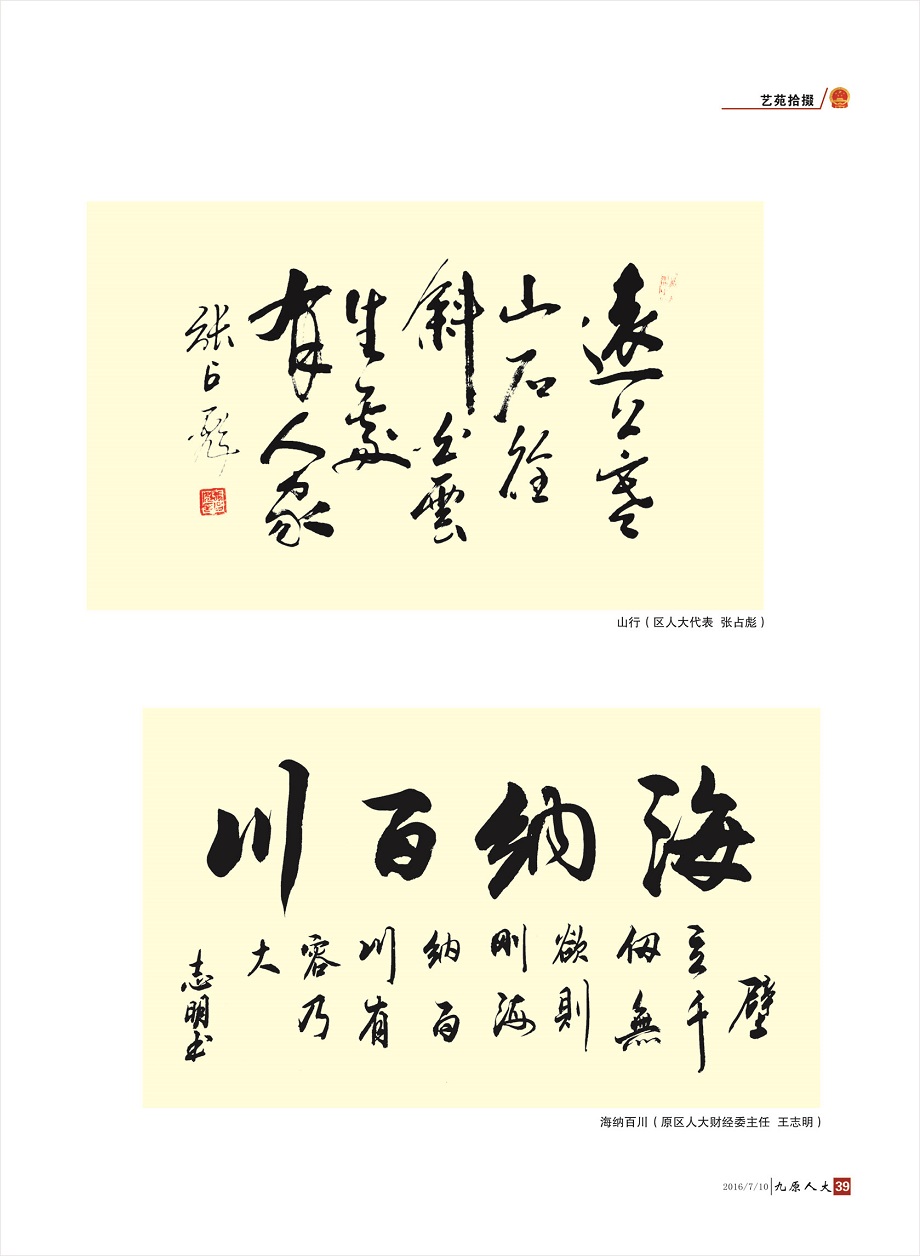 艺苑拾掇
遠上寒
山石徑
斜白雲
生處
有人家
张占彪
山行（区人大代表 张占彪）
海納百川
壁
立千
仞無
欲則
剛海
納百
川有
容乃
大
志明书
海纳百川（原区人大财经委主任 王志明）
2016/7/10 九原人大 39